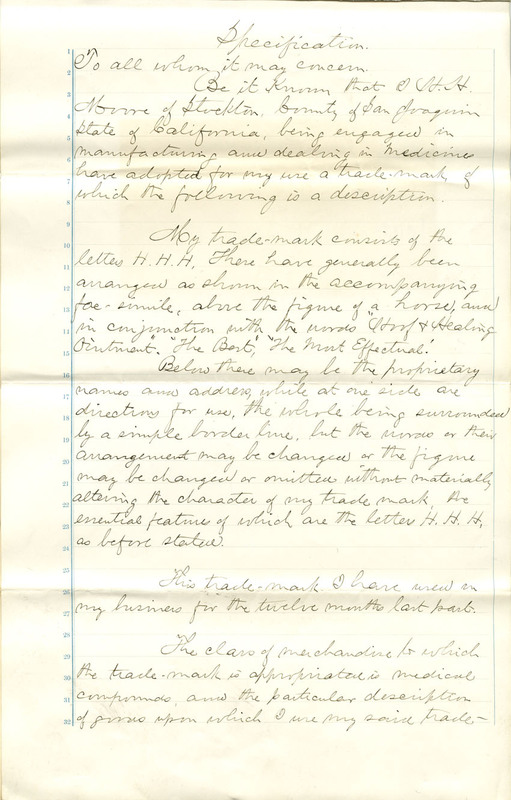 Specification.
To all whom it may concern.
Be it Known that I H. H.
Moore of Stockton, County of San Joaquin
State of California, being engaged in
manufacturing and dealing in medicines
have adopted for my use a trade-mark of
which the following is a description.
My trade-mark consists of the
letters H. H. H. These have generally been
arranged as shown in the accompanying
fac-simile, above the figure of a horse, and
in conjunction with the words "Hoof & Healing
Ointment". "The Best", "The Most Effectual.
Below these may be the proprietary
names and address, while at one side are
directions for use, the whole being surrounded
by a simple border line, but the words or their
arrangement may be changed or the figure
may be changed or omitted without materially
altering the character of my trade mark, the
essential feature of which are the letter H. H. H,
as before stated.
This trade-mark I have used in
my business for the twelve months last past.
The class of merchandise to which
the trade-mark is appropriated is medical
compounds, and the particular description
of goods upon which I use my said trade-
1
2
3
4
5
6
7
8
9
10
11
12
13
14
15
16
17
18
19
20
21
22
23
24
25
26
27
28
29
30
31
32